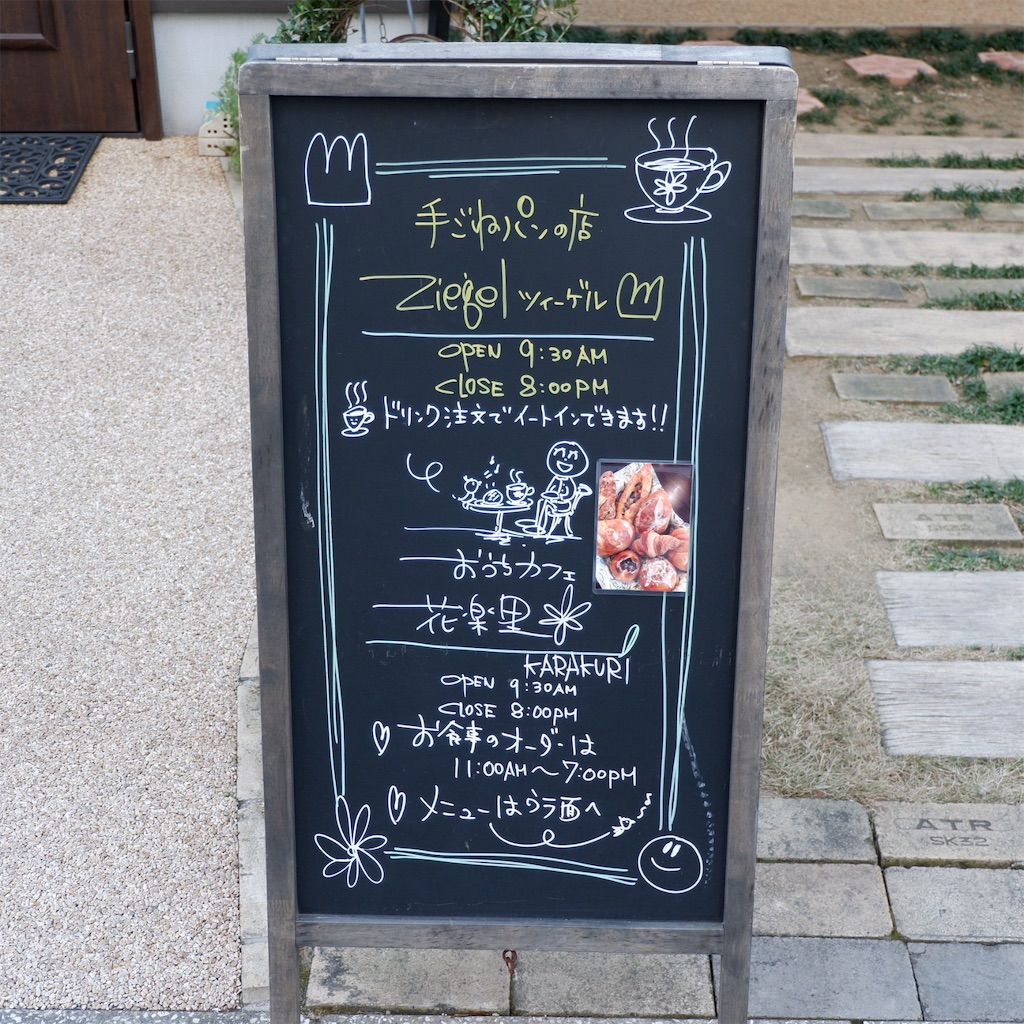 手ごねパンの店
Ziegel ツィーゲル
OPEN 9:30AM
CLOSE 8:00PM
ドリンク注文でイートインできます!!
おうちカフェ
花楽里
KARAKURI
OPEN 9:30AM
CLOSE 8:00PM
お食事のオーダーは
11:00AM～7:00PM
メニューはウラ面へ
ATR
SK32